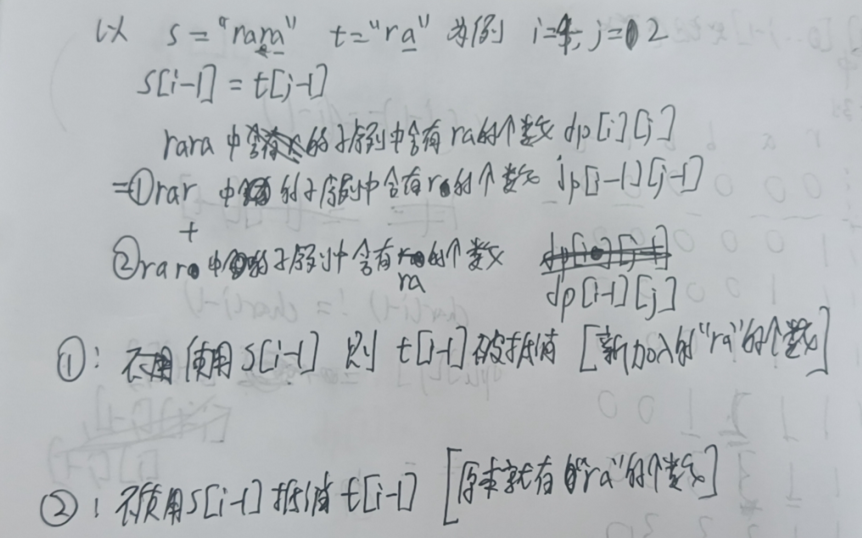 以 s="rara" t="ra" 为例 i=4, j=2
s[i-1] = t[j-1]
rara 中的子序列中含有 ra的个数 dp[i][j]
=①rar 中的子序列中含有r的个数 dp[i-1][j-1]
+
②rar 中的子序列中含有ra的个数 dp[i-1][j]
①: 使用 s[i-1] 则 t[j-1] 被抵值 [新加入的"ra"的个数]
②: 不使用s[i-1]抵值 t[j-1] [原本就有的"ra"的个数]